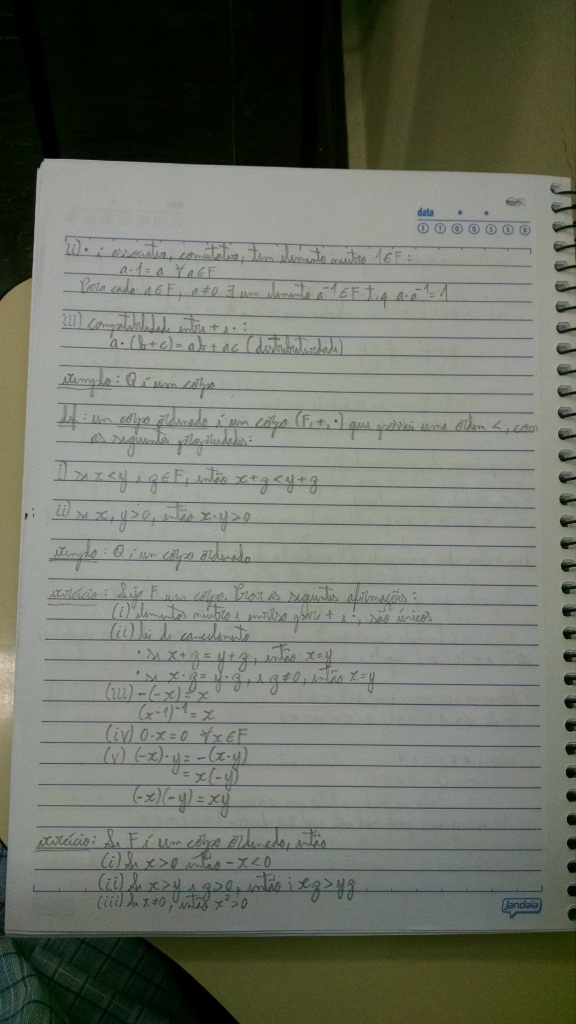 data
S T Q Q S S D
ii) • é associativa, comutativa, tem elemento neutro 1∈F:
a·1 = a ∀a∈F
Para cada a∈F, a≠0 ∃ um elemento a⁻¹∈F t.q a·a⁻¹=1
iii) compatibilidade entre + e • :
a·(b+c) = ab + ac (distributividade)
exemplo: Q é um corpo
def: um corpo ordenado é um corpo (F,+,·) que possui uma ordem <, com
as seguintes propriedades:
i) se x<y e z∈F, então x+z<y+z
ii) se x, y>0, então x·y>0
exemplo: Q é um corpo ordenado
exercício: Seja F um corpo. Prove as seguintes afirmações:
(i) elementos neutro e inverso para + e ·, são únicos
(ii) lei de cancelamento
• se x+z = y+z, então x=y
• se x·z = y·z, e z≠0, então x=y
(iii) -(-x) = x
(x-1)⁻¹ = x
(iv) 0·x = 0 ∀x∈F
(v) (-x)·y = -(x·y)
= x(-y)
(-x)(-y) = xy
exercício: Se F é um corpo ordenado, então
(i) Se x>0 então -x<0
(ii) Se x>y e z>0, então xz>yz
(iii) Se x≠0, então x²>0
Jandaia